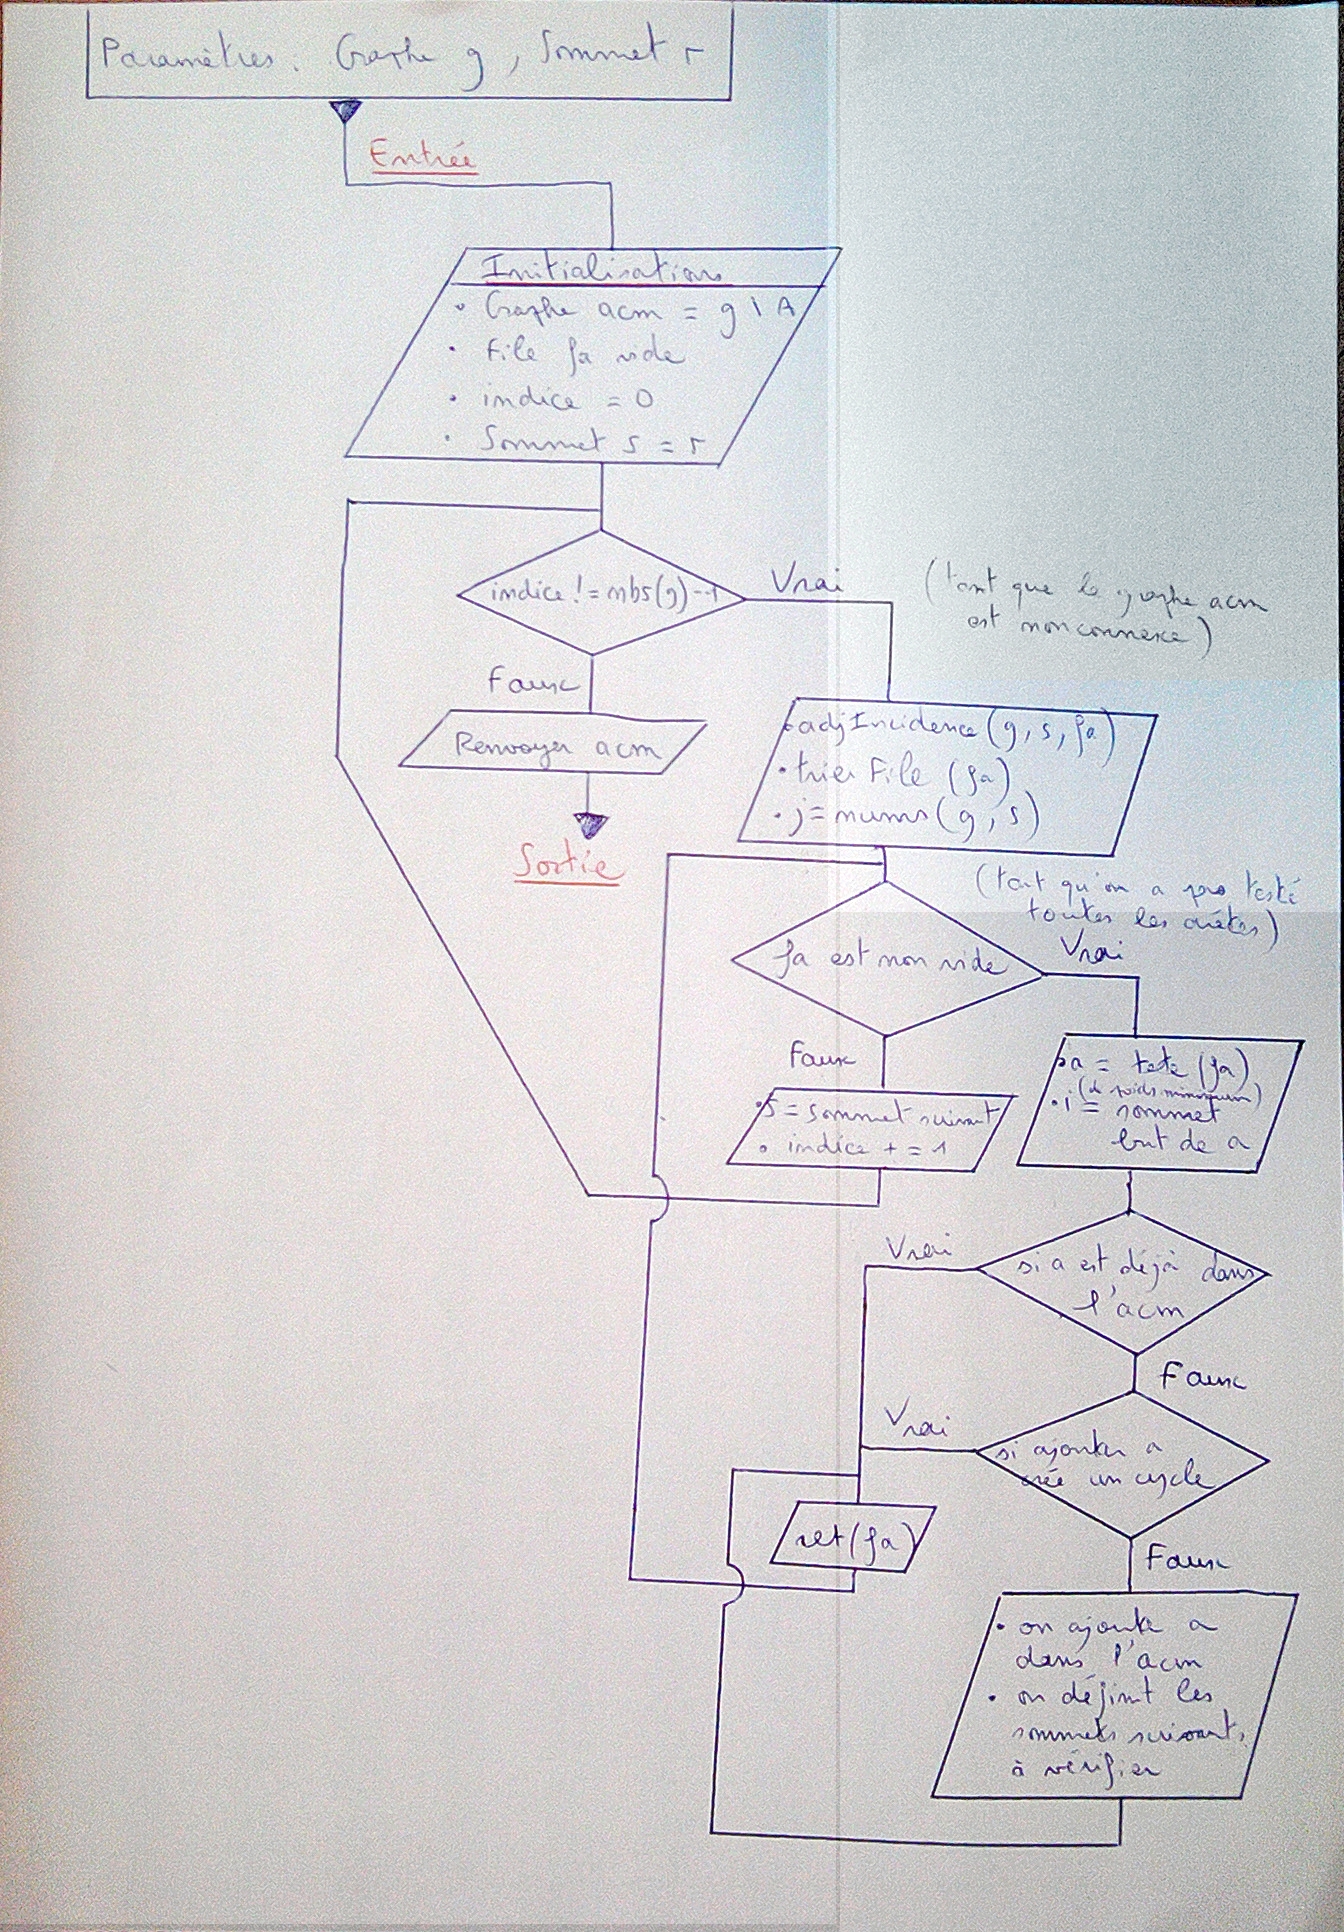 Paramètres : Graphe g, Sommet r
Entrée
Initialisations
• Graphe acm = g \ A
• File fa vide
• indice = 0
• Sommet s = r
indice != nbs(g)-1
Vrai
(tant que le graphe acm
est non connexe)
Faux
Renvoyer acm
Sortie
• adjIncidence (g, s, fa)
• trier File (fa)
• j = nums (g, s)
(tant qu'on a pas testé
toutes les arêtes)
fa est non vide
Vrai
Faux
• s = sommet suivant
• indice += 1
• a = tete (fa)
(de poids minimum)
• i = sommet
but de a
si a est déjà dans
l'acm
Vrai
Faux
si ajouter a
crée un cycle
Vrai
Faux
ret(fa)
• on ajoute a
dans l'acm
• on définit les
sommets suivants
à vérifier